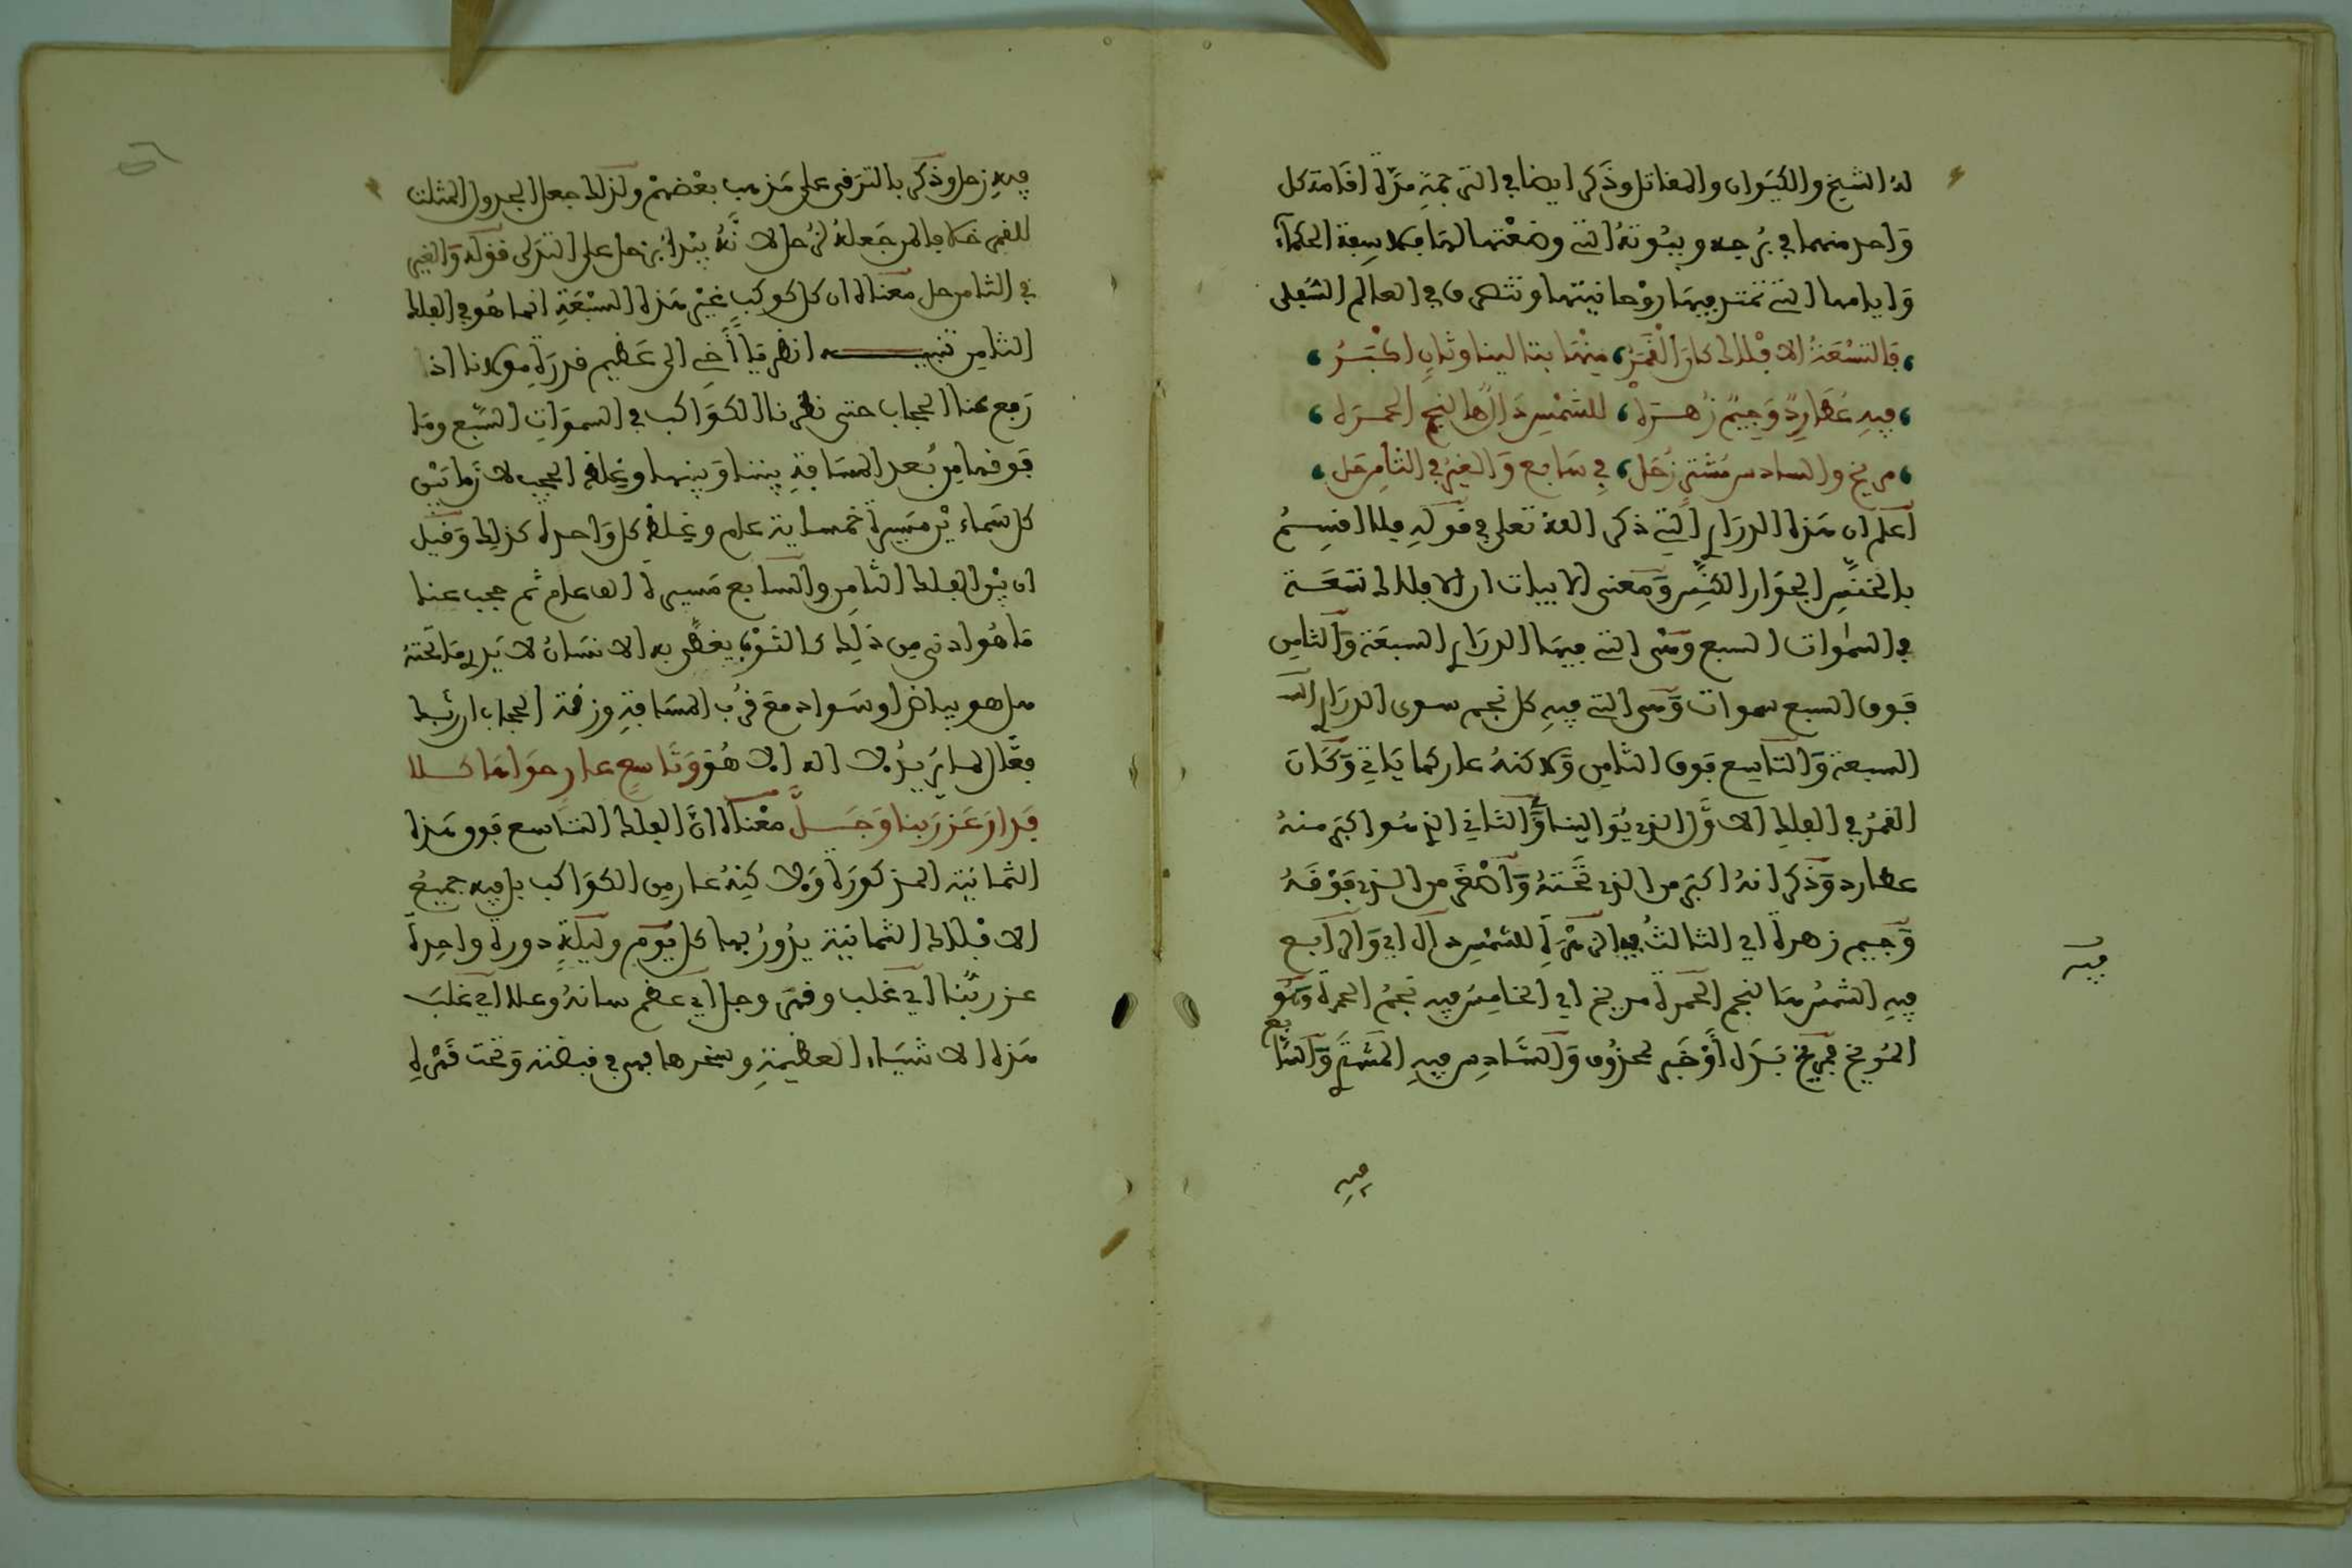 له الشيخ والكيوان والمقاتل وذكر ايضا في الترجمة مدة اقامة كل
واحد منهما في برجه وبيوته التي وضعتها لها فلاسفة الحكماء
وايامها التي تمتد فيها روحانيتها وتتصرف في العالم السفلى
فالتسعة الافلاك كان القمر منها بتا لينا وثان اكبر
فيه عطارد وجيم زهرة للشمس دال ها لنجم الحمرة
مريخ والسادس مشتر زحل في سابع والغير في الثامن حل
اعلم ان هذه الدراري التي ذكر الله تعلى في قوله فلا اقسم
بالخنس الجوار الكنس ومعنى الابيات ان الافلاك تسعة
في السموات السبع وهى التي فيها الدراري السبعة والثامن
فوق السبع سموات وهى التي فيه كل نجم سوى الدراري
السبعة والتاسع فوق الثامن ولاكنه عار كما ياتي وكان
القمر في الفلك الاول الذي يوالينا والثاني الذي هو اكبر منه
عطارد وذكر انه اكبر من الذي تحته واصغر من الذي فوقه
وجيم زهرة اي الثالث فيه الزهرة للشمس دال اي والرابع
فيه الشمس ها لنجم الحمرة مريخ اي الخامس فيه نجم الحمرة وهو
المريخ فمريخ بدل او خبر محذوف والسادس فيه المشتري والسابع
فيه
فيه
فيه زحل وذكر بالترقى على مذهب بعضهم ولذلك جعل الجدول المثلث
للقمر خلافا لمن جعله لزحل لانه يبدأ بزحل على التدلى قوله والغير
في الثامن حل معناه ان كل كوكب غير هذه السبعة انما هو في الفلك
الثامن تنبيه انظر يا أخي الى عظيم قدرة مولانا اذ
رفع عنا الحجاب حتى نظرنا الكواكب في السموات السبع وما
فوقها من بعد المسافة بيننا وبينها وغلظ الحجب لان ما بين
كل سماءين مسيرة خمسماية عام وغلظ كل واحدة كذلك وقيل
ان بين الفلك الثامن والسابع مسيرة الف عام ثم حجب عنا
ما هو ادنى من ذلك كالثوب يغطى به الانسان لا يدري ما تحته
هل هو بياض او سواد مع قرب المسافة ورقة الحجاب ان ربك
فعال لما يريد لا اله الا هو وتاسع عار حوا ما كلا
فدار عز ربنا وجل معناه ان الفلك التاسع فوق هذه
الثمانية المذكورة ولاكنه عار من الكواكب بل فيه جميع
الافلاك الثمانية يدور بها كل يوم وليلة دورة واحدة
عز ربنا اي غلب وقهر وجل اي عظم شانه وعلا اي غلب
هذه الاشياء العظيمة وسخرها فهى في قبضته وتحت قهره